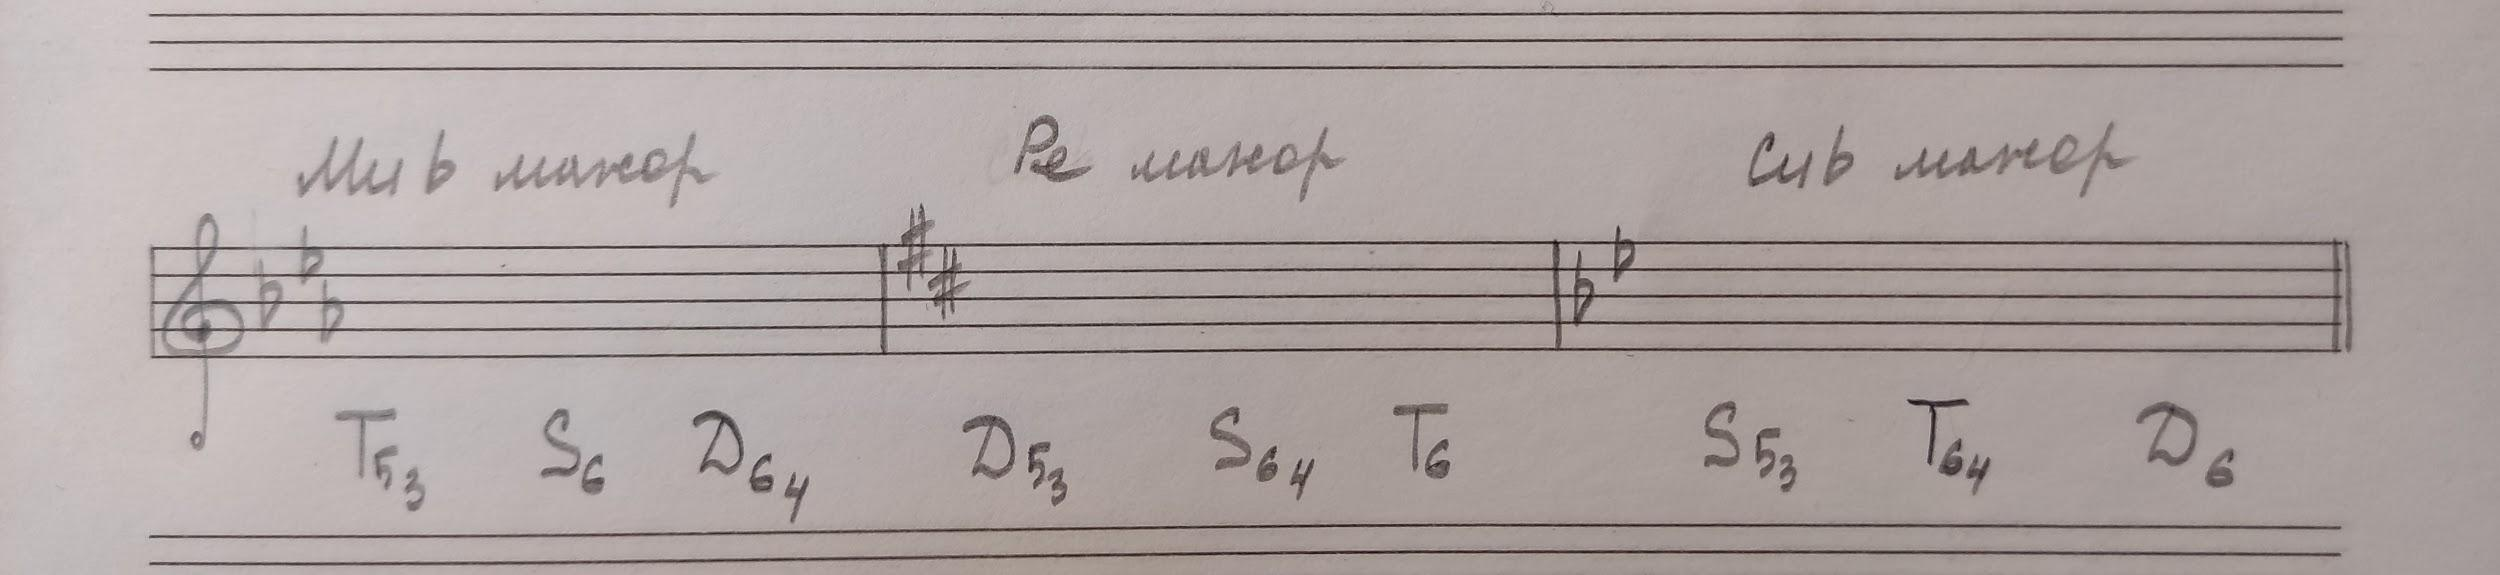 Ми♭ мажор Ре мажор Си♭ мажор
T53 S6 D64 D53 S64 T6 S53 T64 D6